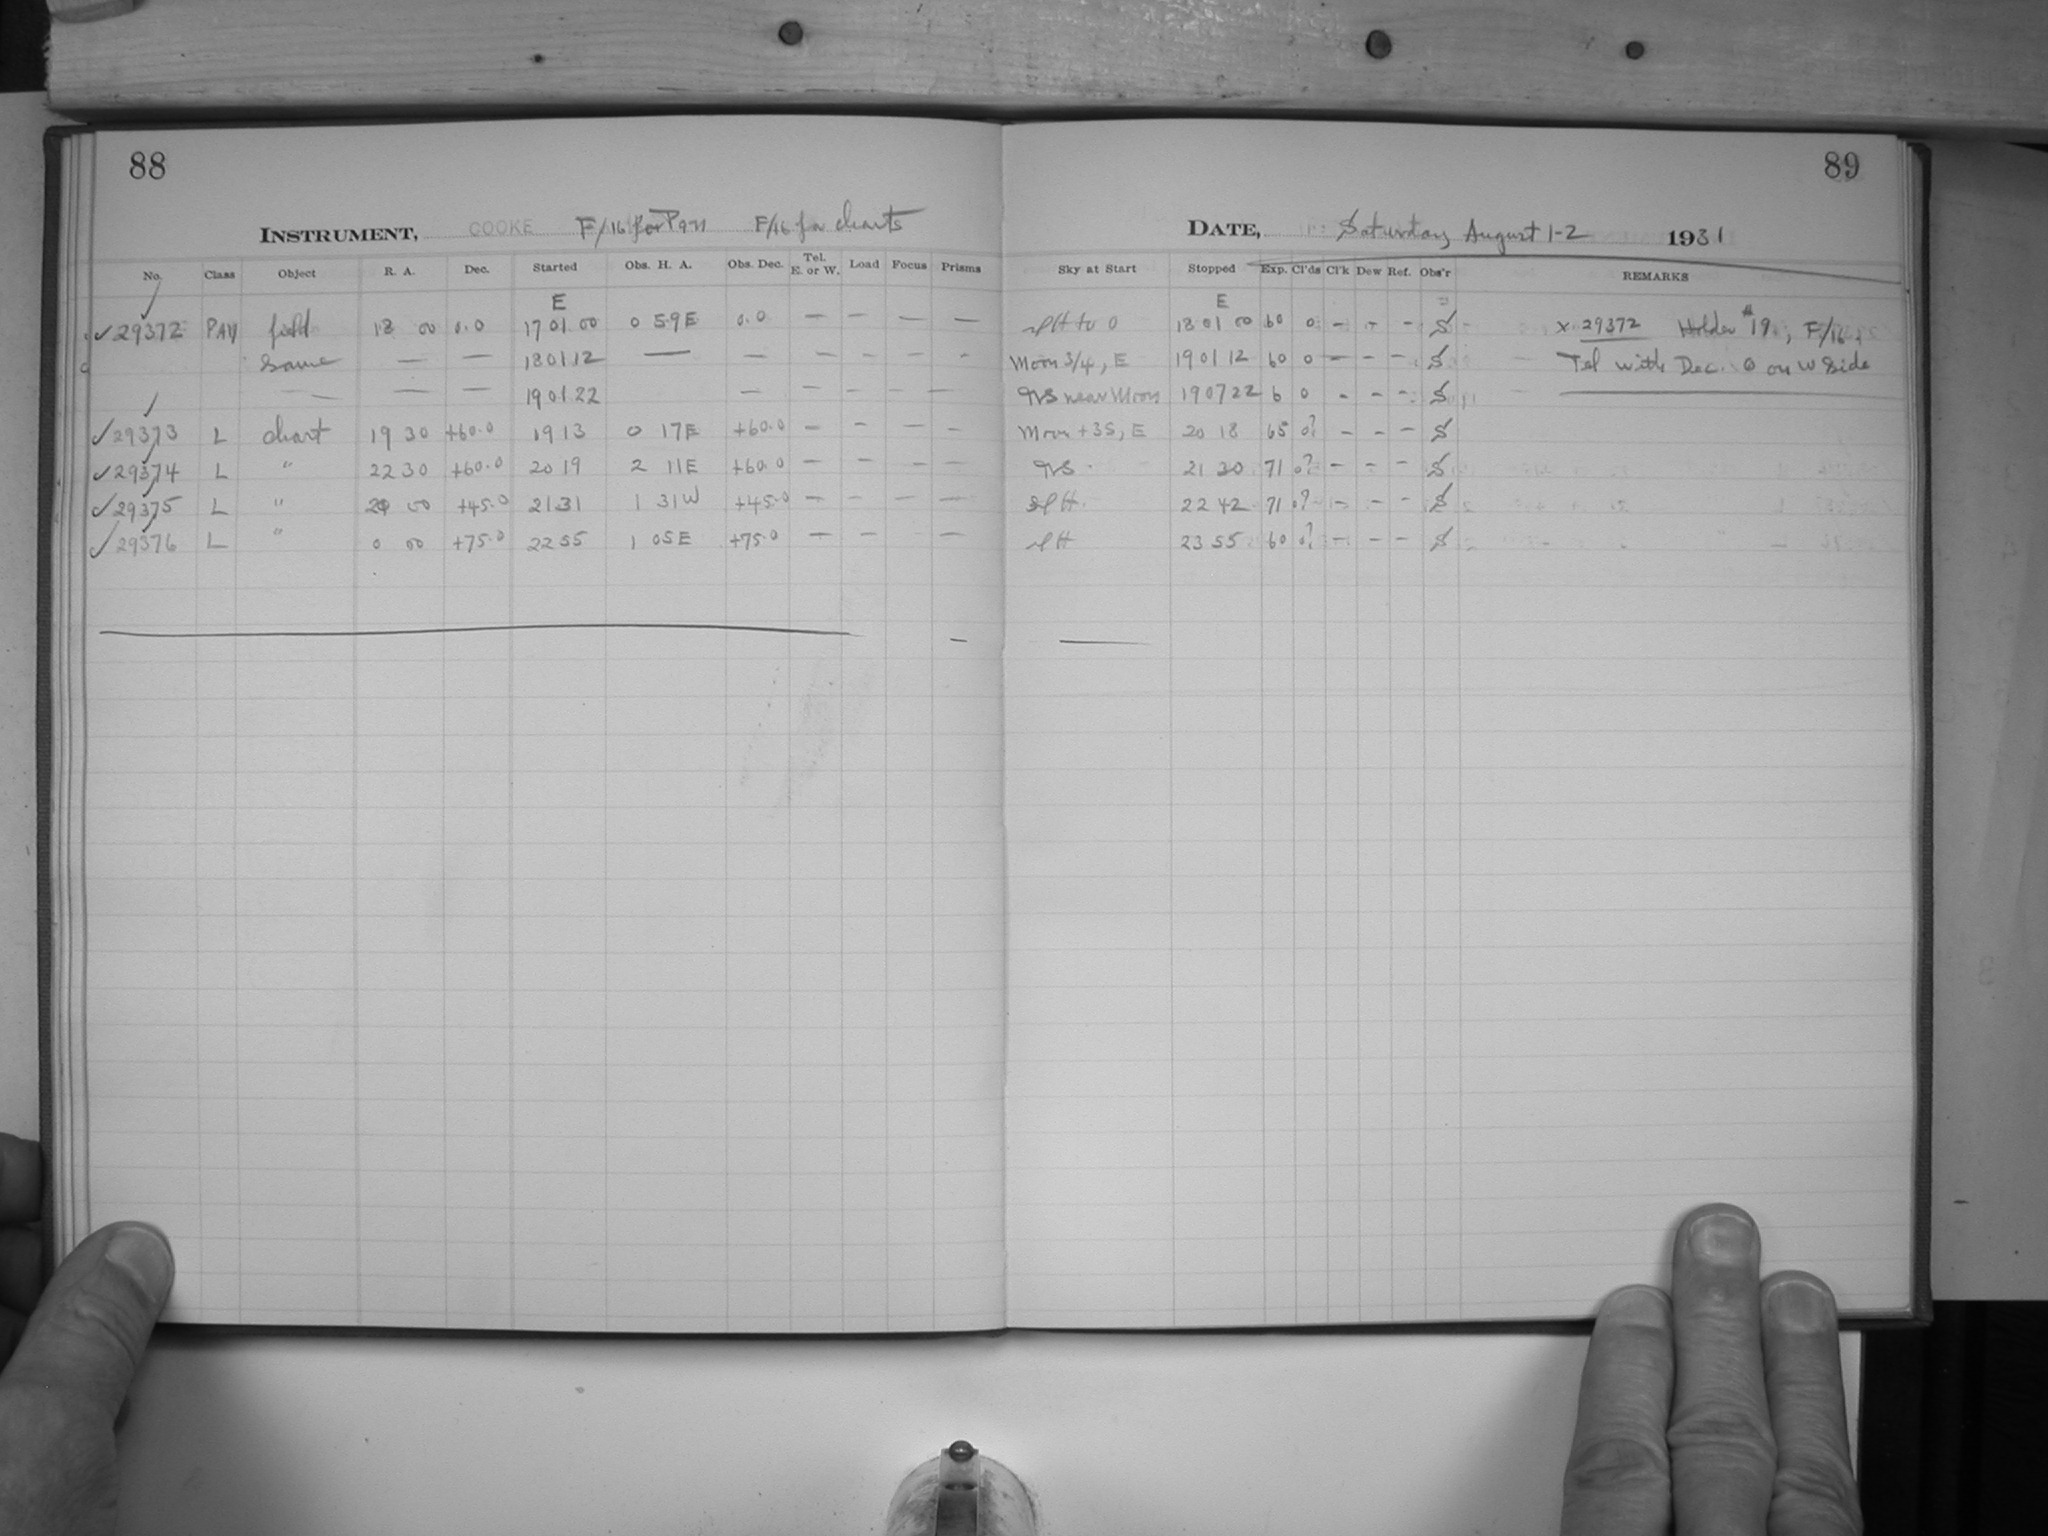 88
INSTRUMENT, COOKE F/16 for Pan F/16 for charts
No. Class Object R. A. Dec. Started Obs. H. A. Obs. Dec. Tel. E. or W. Load Focus Prisms
E
29372 PAN field 18 00 0.0 17 01 00 0 59E 0.0 — — — —
Same — — 18 01 12 — — — — — -
— — — 19 01 22 — — — — —
29373 L chart 19 30 +60.0 19 13 0 17E +60.0 — — — —
29374 L " 22 30 +60.0 20 19 2 11E +60.0 — — — —
29375 L " 20 00 +45.0 21 31 1 31W +45.0 — — — —
29376 L " 0 00 +75.0 22 55 1 05E +75.0 — — — —
89
DATE, Saturday August 1-2 1931
Sky at Start Stopped Exp. Cl'ds Cl'k Dew Ref. Obs'r REMARKS
E
to 0 18 01 00 60 0 - - - S x 29372 Holder #19, F/16.
Moon 3/4, E 19 01 12 60 0 - - - S Tel with Dec. 0 on W Side
near Moon 19 07 22 6 0 - - - S
Moon +35, E 20 18 65 0? - - - S
21 30 71 0? - - - S
22 42 71 0? - - - S
23 55 60 0? - - - S